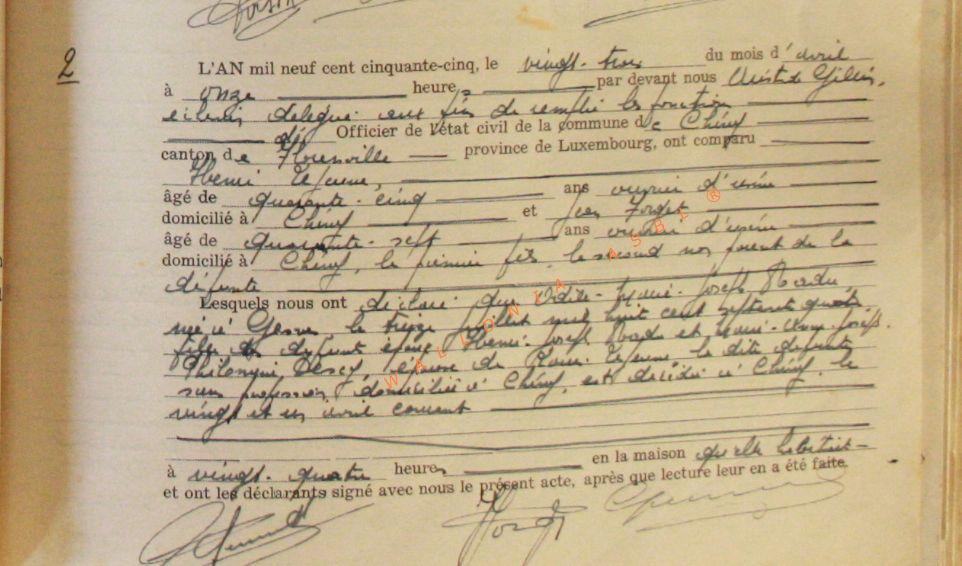 2
L'AN mil neuf cent cinquante-cinq, le vingt-trois du mois d'avril
à onze heures par devant nous
échevin délégué aux fins de remplir les fonctions
d' Officier de l'état civil de la commune de Chiny
canton de Florenville province de Luxembourg, ont comparu
Henri Lejeune,
âgé de quarante-cinq ans ouvrier d'usine
domicilié à Chiny et Jean
âgé de quarante-sept ans ouvrier d'usine
domicilié à Chiny, le premier fils, le second non parent de la
défunte
Lesquels nous ont déclaré que Marie-Joseph
née à Gesves, le treize juillet mil huit cent septante quatre
fille de défunt époux Henri-Joseph et Marie-Anne-Joseph
épouse de Lejeune, la dite défunte
sans profession, domiciliée à Chiny, est décédée à Chiny, le
vingt et un avril courant
à vingt-quatre heures en la maison qu'elle habitait
et ont les déclarants signé avec nous le présent acte, après que lecture leur en a été faite.
WALLONIA ASBL ®